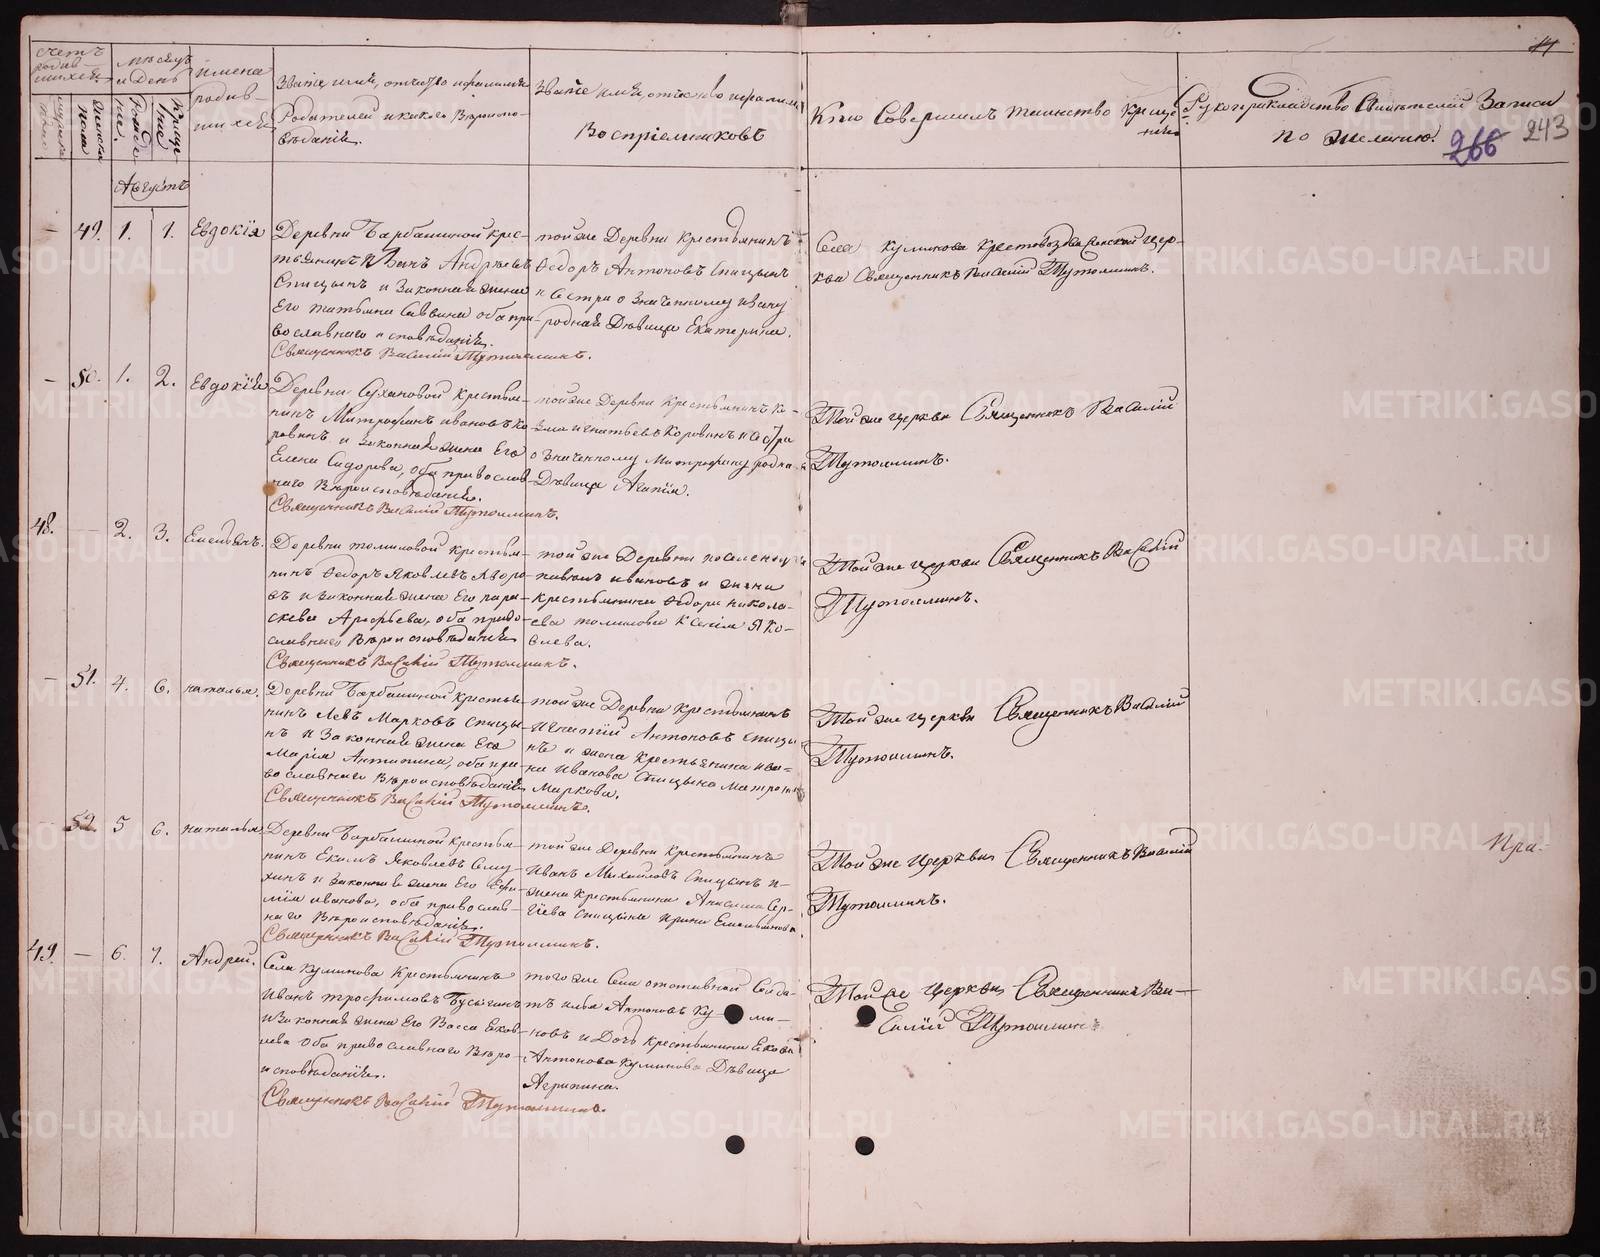 счетъ родив-шихся.
мужеска пола
женска пола
Мѣсяцъ и день
Рожде-ніе.
Креще-ніе
имена родив-шихся
Званіе, имя, отчество и фамилія
Родителей и какого Вѣроиспо-
вѣданія.
Званіе имя, отчество и фамилия
Воспріемниковъ
Кто Совершилъ таинство Креще-
нія
Рукоприкладство Свидѣтелей Записи
по желанію.
266 243
Августъ
– 49. 1. 1. Евдокія
Деревни Барбашиной крес-
тьянинъ Иванъ Андреевъ
Спицынъ и Законная жена
Его татьяна Саввина оба пра-
вославнаго исповѣданія.
Священникъ Василій Тутолминъ.
той же Деревни Крестьянинъ
Ѳедоръ Антоновъ Спицынъ
и Сестра означенному Ивану
родная Дѣвица Екатерина.
Села Куминова Крестовоздвиженской цер-
кви Священникъ Василій Тутолминъ.
– 50. 1. 2. Евдокія
Деревни Сухановой Крестья-
нинъ Митрофанъ ивановъ Ко-
ровинъ и законная жена Его
Елена Сидорова, оба православ-
наго Вѣроисповѣданія.
Священникъ Василій Тутолминъ.
той же Деревни Крестьянинъ Ко-
зма игнатьевъ Коровинъ и Сестра
означенному Митрофану родна-
Дѣвица Агапія.
Той же церкви Священникъ Василій
Тутолминъ.
48. — 2. 3. Емельянъ.
Деревни томиловой Крестья-
нинъ Ѳедоръ Яковлевъ
и законная жена Его пара-
скева Арефьева, оба право-
славнаго Вѣроисповѣданія
Священникъ Василій Тутолминъ.
той же Деревни
ивановъ и жена
Крестьянина Ѳедора Никола-
ева томилова Ксенія Яко-
влева.
Той же церкви Священникъ Василій
Тутолминъ.
– 51. 4. 6. наталья.
Деревни Барбашиной Крестья-
нинъ Левъ Марковъ Спицы-
нъ и Законная жена Его
Марія Антипина, оба пра-
вославнаго Вѣроисповѣданія
Священникъ Василій Тутолминъ.
той же Деревни Крестьянинъ
Игнатій Антоновъ Спицы-
нъ и жена Крестьянина ива-
на Иванова Спицына Матрона
Маркова.
Той же церкви Священникъ Василій
Тутолминъ.
– 52. 5 6. наталья
Деревни Барбашиной Крестья-
нинъ Екимъ Яковлевъ
и Законная жена Его Ефи-
мія иванова, оба православ-
наго Вѣроисповѣданія.
Священникъ Василій Тутолминъ.
той же Деревни Крестьянинъ
Иванъ Михайловъ Спицынъ и
жена Крестьянина Анисима Сер-
гіева Спицына ирина Емельянова
Той же Церкви Священникъ Василій
Тутолминъ.
49. — 6. 7. Андрей.
Села Куминова Крестьянинъ
Иванъ трофимовъ Бусыгинъ
и Законная жена Его Васса
Оба православнаго Вѣро-
исповѣданія.
Священникъ Василій Тутолминъ.
того же Села отставной Солда-
тъ илья Антоновъ Куми-
новъ и Дочь Крестьянина
Антонова Куминова Дѣвица
Агрипина.
Той же Церкви Священникъ Ва-
силій Тутолминъ
METRIKI.GASO-URAL.RU